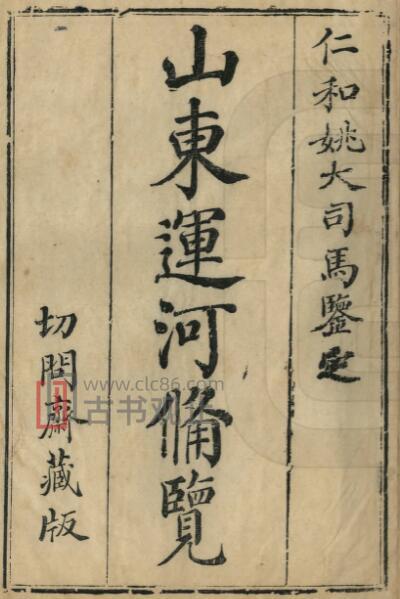 仁和姚大司馬鑒定
山東運河備覽
切問齋藏版
www.clc86.com
古书观止